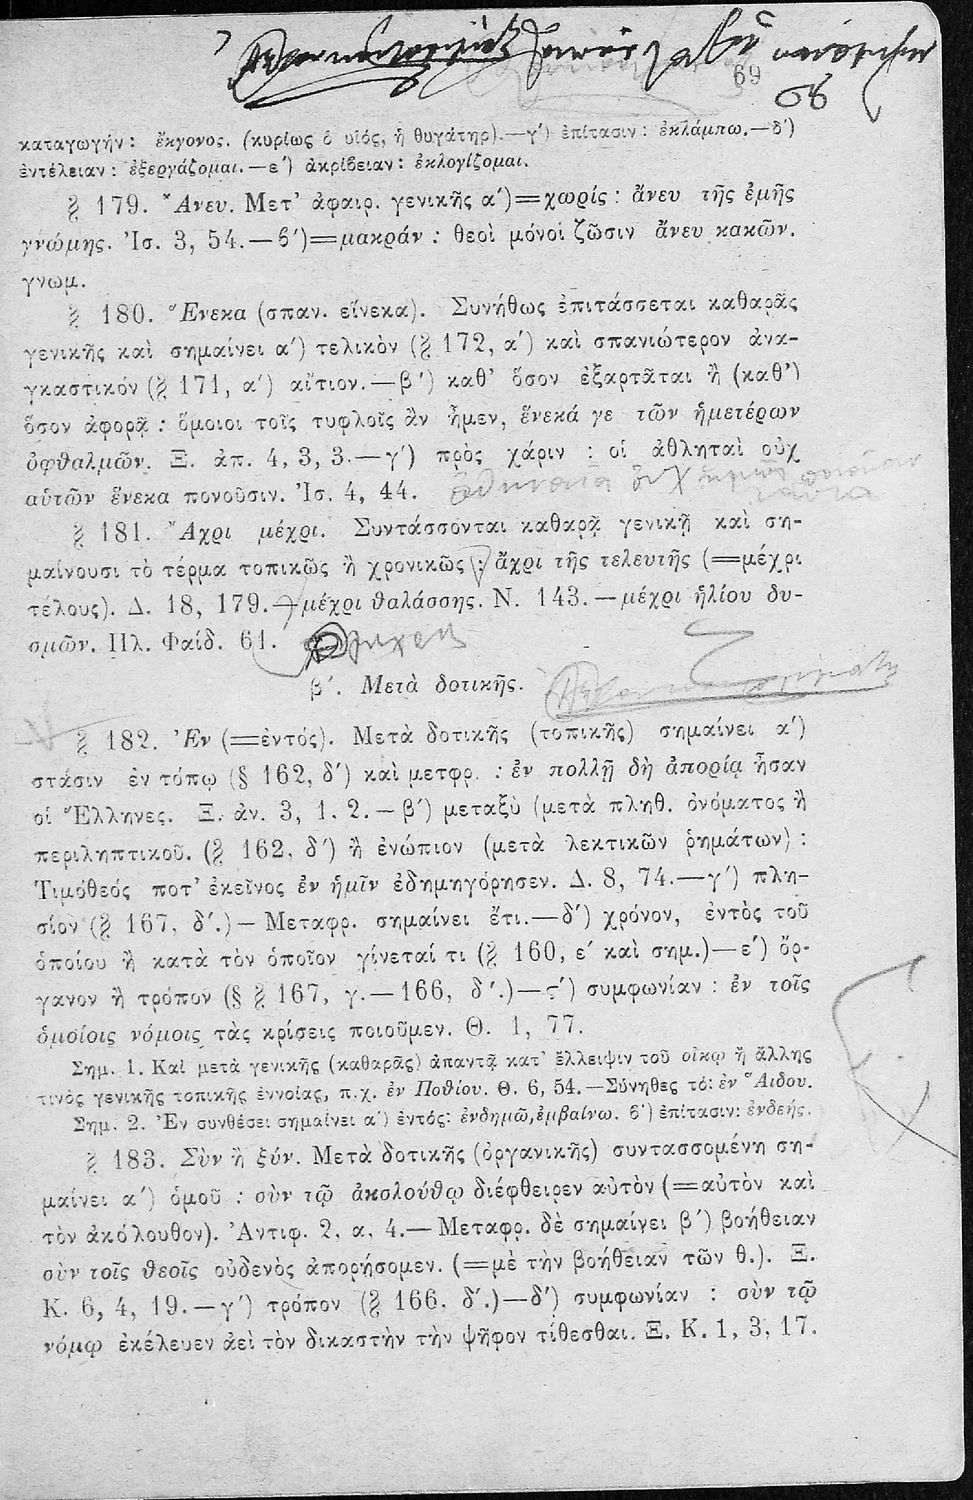 69
καταγωγήν: ἔκγονος. (κυρίως ὁ υἱός, ἡ θυγάτηρ).—γ′) ἐπίτασιν: ἐκλάμπω.—δ′)
ἐντέλειαν: ἐξεργάζομαι.—ε′) ἀκρίβειαν: ἐκλογίζομαι.
§ 179. Ἄνευ. Μετ’ ἀφαιρ. γενικῆς α′)=χωρίς: ἄνευ τῆς ἐμῆς
γνώμης. Ἰσ. 3, 54.—β′)=μακράν: θεοὶ μόνοι ζῶσιν ἄνευ κακῶν.
γνωμ.
§ 180. Ἕνεκα (σπαν. εἵνεκα). Συνήθως ἐπιτάσσεται καθαρᾶς
γενικῆς καὶ σημαίνει α′) τελικὸν (§ 172, α′) καὶ σπανιώτερον ἀνα-
γκαστικόν (§ 171, α′) αἴτιον.—β′) καθ’ ὅσον ἐξαρτᾶται ἢ (καθ’)
ὅσον ἀφορᾷ: ὅμοιοι τοῖς τυφλοῖς ἂν ἦμεν, ἕνεκά γε τῶν ἡμετέρων
ὀφθαλμῶν. Ξ. ἀπ. 4, 3, 3.—γ′) πρὸς χάριν: οἱ ἀθληταὶ οὐχ
αὑτῶν ἕνεκα πονοῦσιν. Ἰσ. 4, 44.
§ 181. Ἄχρι μέχρι. Συντάσσονται καθαρᾷ γενικῇ καὶ ση-
μαίνουσι τὸ τέρμα τοπικῶς ἢ χρονικῶς: ἄχρι τῆς τελευτῆς (=μέχρι
τέλους). Δ. 18, 179.—μέχρι θαλάσσης. Ν. 143.—μέχρι ἡλίου δυ-
σμῶν. Πλ. Φαίδ. 61.
β′. Μετὰ δοτικῆς.
§ 182. Ἐν (=ἐντός). Μετὰ δοτικῆς (τοπικῆς) σημαίνει α′)
στάσιν ἐν τόπῳ (§ 162, δ′) καὶ μετφρ.: ἐν πολλῇ δὴ ἀπορίᾳ ἦσαν
οἱ Ἕλληνες. Ξ. ἀν. 3, 1. 2.—β′) μεταξὺ (μετὰ πληθ. ὀνόματος ἢ
περιληπτικοῦ. (§ 162, δ′) ἢ ἐνώπιον (μετὰ λεκτικῶν ῥημάτων):
Τιμόθεός ποτ’ ἐκεῖνος ἐν ἡμῖν ἐδημηγόρησεν. Δ. 8, 74.—γ′) πλη-
σίον (§ 167, δ′.)—Μεταφρ. σημαίνει ἔτι.—δ′) χρόνον, ἐντὸς τοῦ
ὁποίου ἢ κατὰ τὸν ὁποῖον γίνεταί τι (§ 160, ε′ καὶ σημ.)—ε′) ὄρ-
γανον ἢ τρόπον (§ § 167, γ.—166, δ′.)—ς′) συμφωνίαν: ἐν τοῖς
ὁμοίοις νόμοις τὰς κρίσεις ποιοῦμεν. Θ. 1, 77.
Σημ. 1. Καὶ μετὰ γενικῆς (καθαρᾶς) ἀπαντᾷ κατ’ ἔλλειψιν τοῦ οἴκῳ ἢ ἄλλης
τινὸς γενικῆς τοπικῆς ἐννοίας, π.χ. ἐν Ποθίου. Θ. 6, 54.—Σύνηθες τό: ἐν Ἅιδου.
Σημ. 2. Ἐν συνθέσει σημαίνει α′) ἐντός: ἐνδημῶ, ἐμβαίνω. β′) ἐπίτασιν: ἐνδεής.
§ 183. Σὺν ἢ ξύν. Μετὰ δοτικῆς (ὀργανικῆς) συντασσομένη ση-
μαίνει α′) ὁμοῦ: σὺν τῷ ἀκολούθῳ διέφθειρεν αὐτὸν (=αὐτὸν καὶ
τὸν ἀκόλουθον). Ἀντιφ. 2, α, 4.—Μεταφρ. δὲ σημαίνει β′) βοήθειαν
σὺν τοῖς θεοῖς οὐδενὸς ἀπορήσομεν. (=μὲ τὴν βοήθειαν τῶν θ.). Ξ.
Κ. 6, 4, 19.—γ′) τρόπον (§ 166. δ′.)—δ′) συμφωνίαν: σὺν τῷ
νόμῳ ἐκέλευεν ἀεὶ τὸν δικαστὴν τὴν ψῆφον τίθεσθαι. Ξ. Κ. 1, 3, 17.